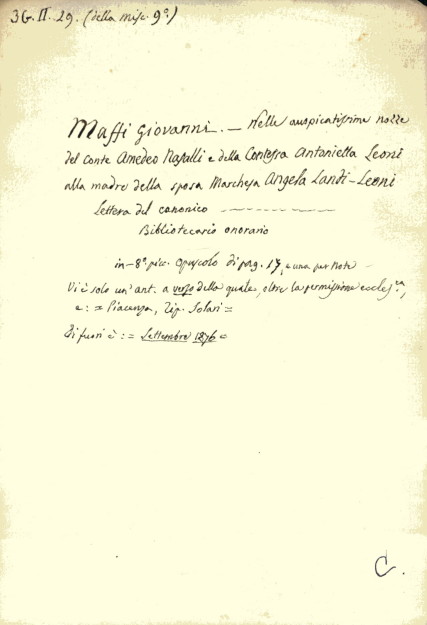 3G. II. 29. (della misc. 9ª)
Maffi Giovanni. — Nelle auspicatissime nozze
del conte Amedeo Nasalli e della Contessa Antonietta Leoni
alla madre della sposa Marchesa Angela Landi-Leoni
Lettera del canonico —
Bibliotecario onorario
in-8° picc. opuscolo di pag. 17, e una per Note —
Vi è solo un' ant. a verso della quale, oltre la permissione eccles.ca,
e: = Piacenza, Tip. Solari =
Di fuori è : = Settembre 1876 =
C.